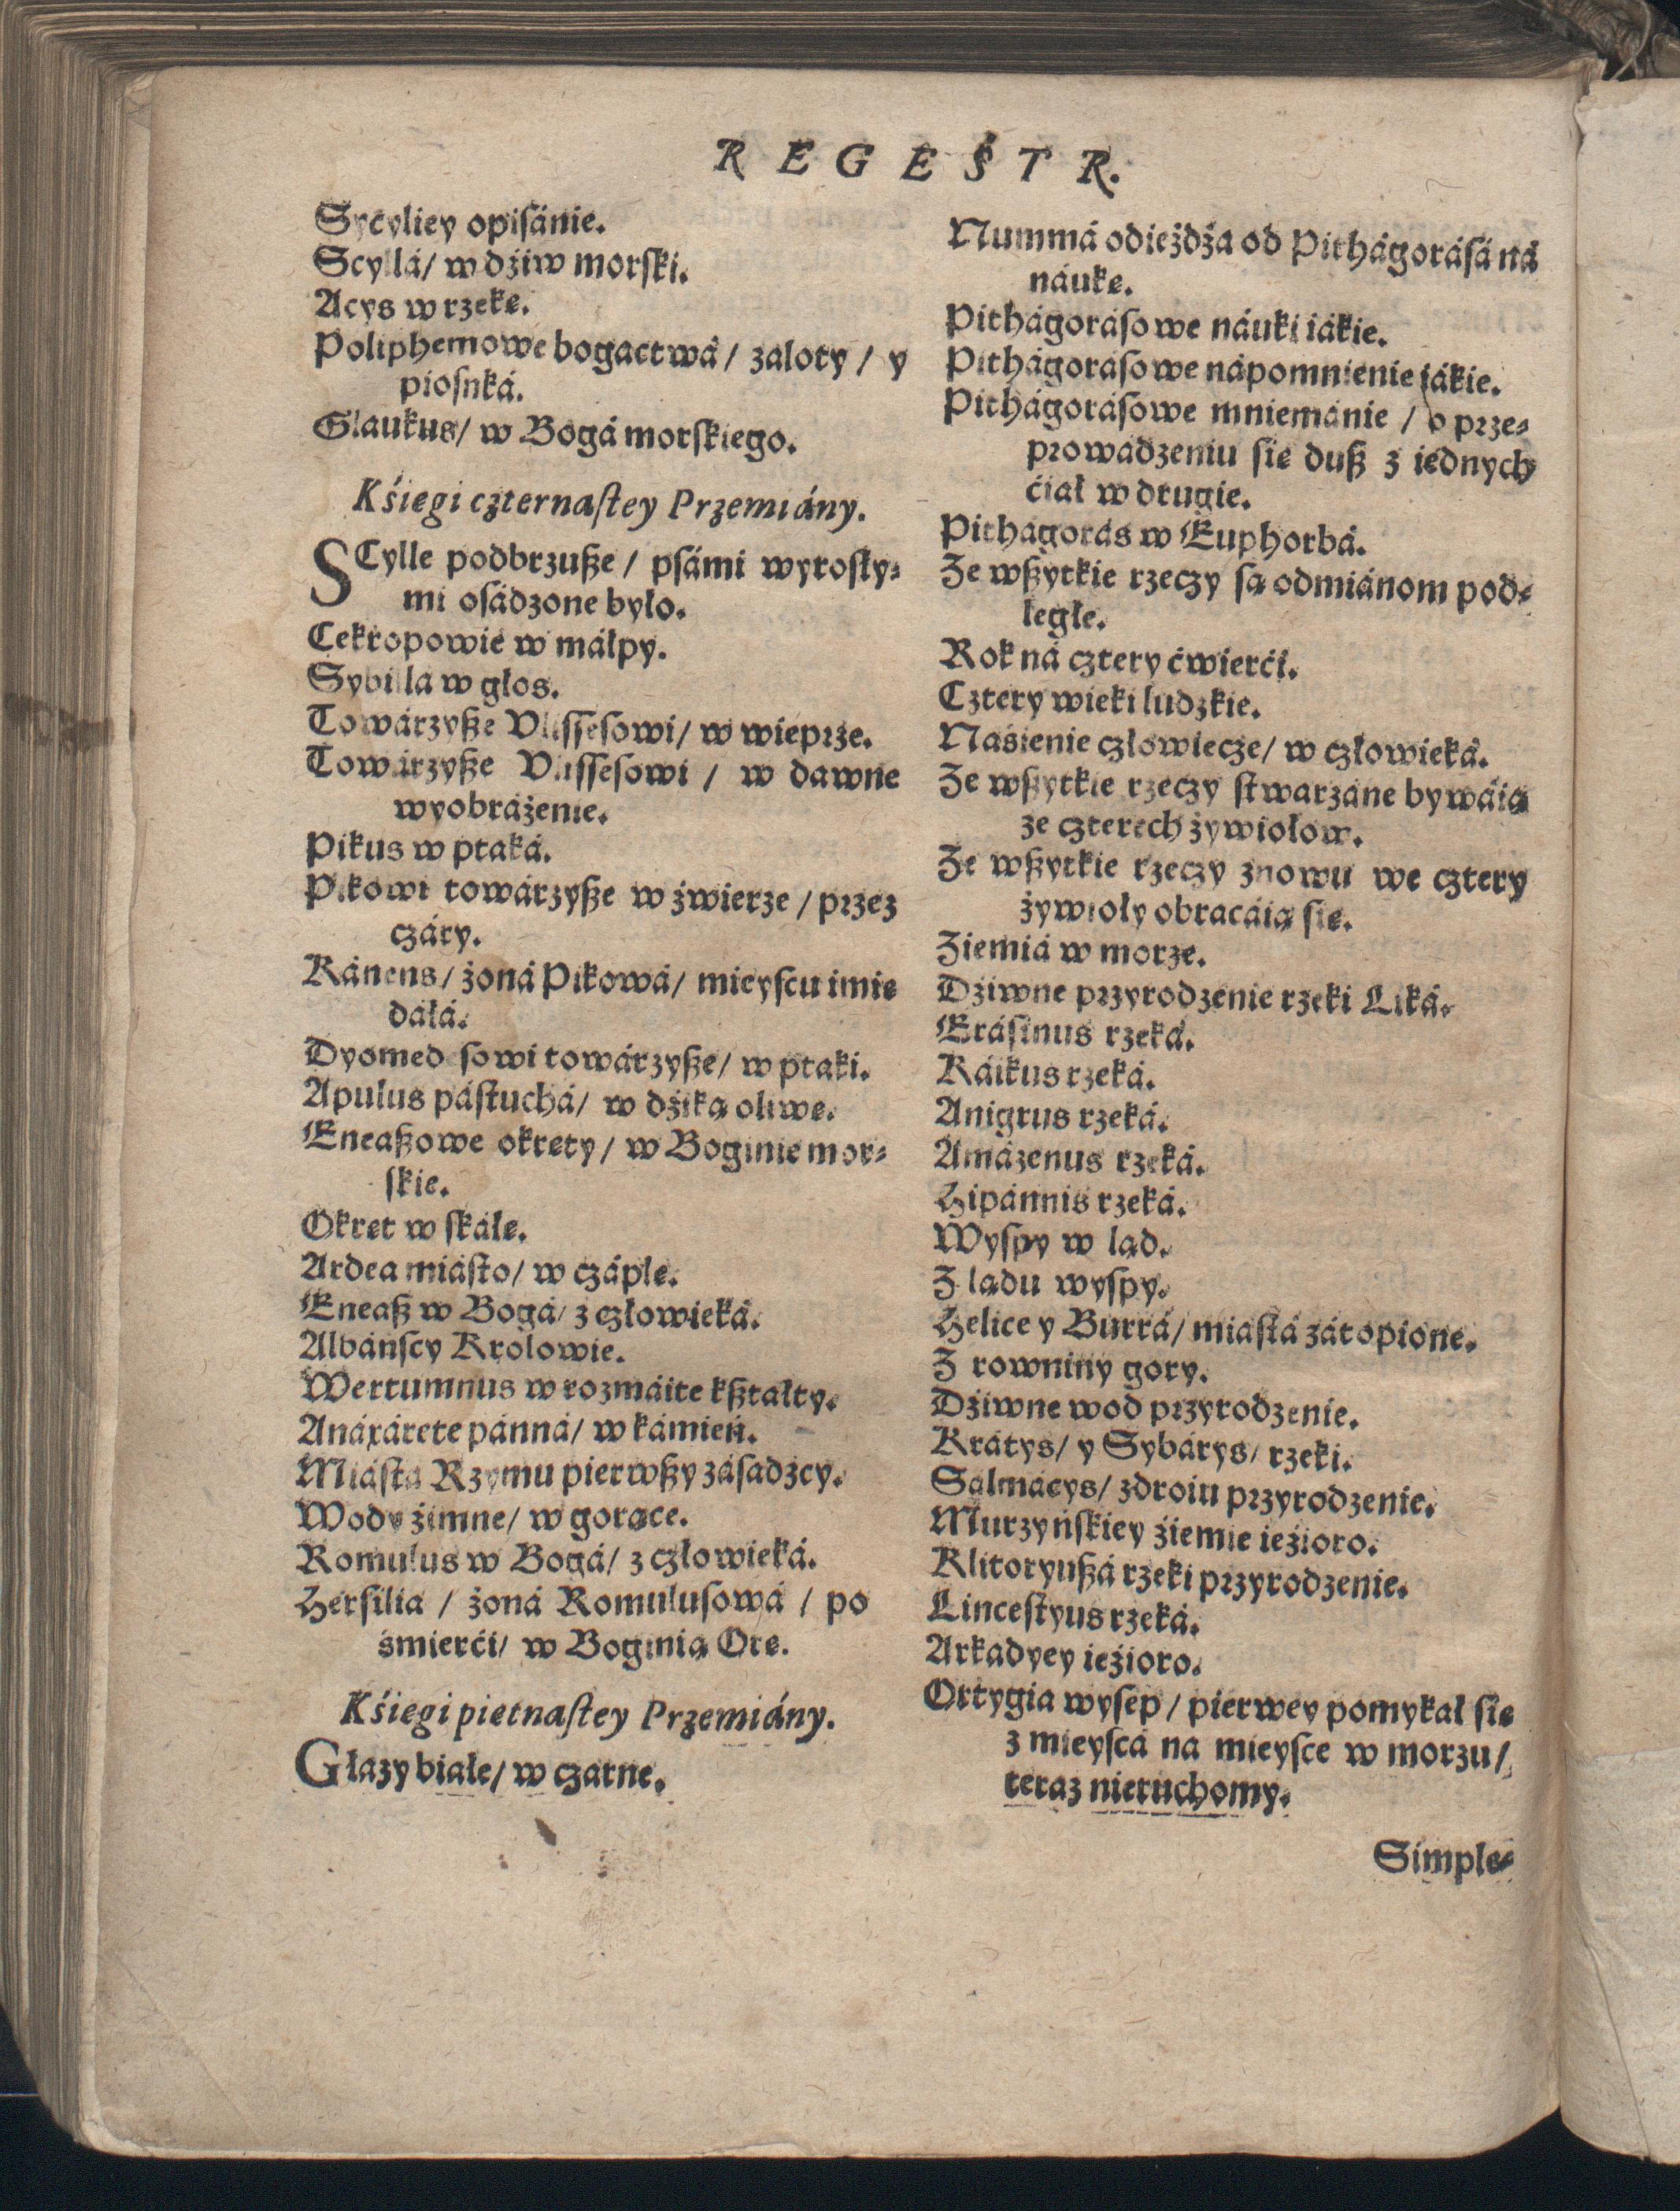 REGESTR.
Sycyliey opiſánie.
Scyllá/ w dźiw morſki.
Acys w rzekę.
Poliphemowe bogactwá/ zaloty/ y
pioſnká.
Glaukus/ w Bogá morſkiego.
Kśięgi czternaſtey Przemiány.
SCylle podbrzuſze/ pſámi wyroſły⸗
mi oſádzone było.
Cekropowie w máłpy.
Sybilla w głos.
Towárzyſze Vliſſeſowi/ w wieprze.
Towárzyſze Vliſſeſowi/ w dawne
wyobráżenie.
Pikus w ptaká.
Pikowi towárzyſze w źwierze/ przez
czáry.
Kánens/ żoná Pikowá/ mieyſcu imię
dáłá.
Dyomedeſowi towárzyſze/ w ptaki.
Apulus páſtuchá/ w dźiką oliwę.
Eneaſzowe okręty/ w Boginie mor⸗
ſkie.
Okręt w ſkáłę.
Ardea miáſto/ w czáplę.
Eneaſz w Bogá/ z człowieká.
Albánſcy Krolowie.
Wertumnus w rozmáite kſztałty.
Anáxárete pánná/ w kámień.
Miáſtá Rzymu pierwſzy záſadźcy.
Wody źimne/ w gorące.
Romulus w Bogá/ z człowieká.
Herſilia/ żoná Romuluſowá/ po
śmierći/ w Boginią Orę.
Kśięgi piętnaſtey Przemiány.
Głazy białe/ w czarne.
Nummá odieżdża od Pithágoráſá ná
náukę.
Pithágoráſowe náuki iákie.
Pithágoráſowe nápomnienie iákie.
Pithágoráſowe mniemánie/ o prze⸗
prowadzeniu ſię duſz z iednych
ćiał w drugie.
Pithágorás w Euphorbá.
Ze wſzytkie rzeczy ſą odmiánom pod⸗
łegłe.
Rok ná cztery ćwierći.
Cztery wieki ludzkie.
Naśienie człowiecze/ w człowieká.
Ze wſzytkie rzeczy ſtwarzáne bywáią
ze czterech żywiołow.
Ze wſzytkie rzeczy znowu we cztery
żywioły obracáią ſię.
Ziemiá w morze.
Dźiwne przyrodzenie rzeki Liká.
Eráſinus rzeká.
Káikus rzeká.
Anigrus rzeká.
Amázenus rzeká.
Hipánnis rzeká.
Wyſpy w ląd.
Z lądu wyſpy.
Helice y Burrá/ miáſtá zátopione.
Z rowniny gory.
Dźiwne wod przyrodzenie.
Krátys/ y Sybárys/ rzeki.
Sálmácys/ zdroiu przyrodzenie.
Murzyńſkiey źiemie ieźioro.
Klitoryuſzá rzeki przyrodzenie.
Linceſtyus rzeká.
Arkadyey ieźioro.
Ortygia wyſep/ pierwey pomykał ſię
z mieyſcá na mieyſce w morzu/
teraz nieruchomy.
Simple⸗